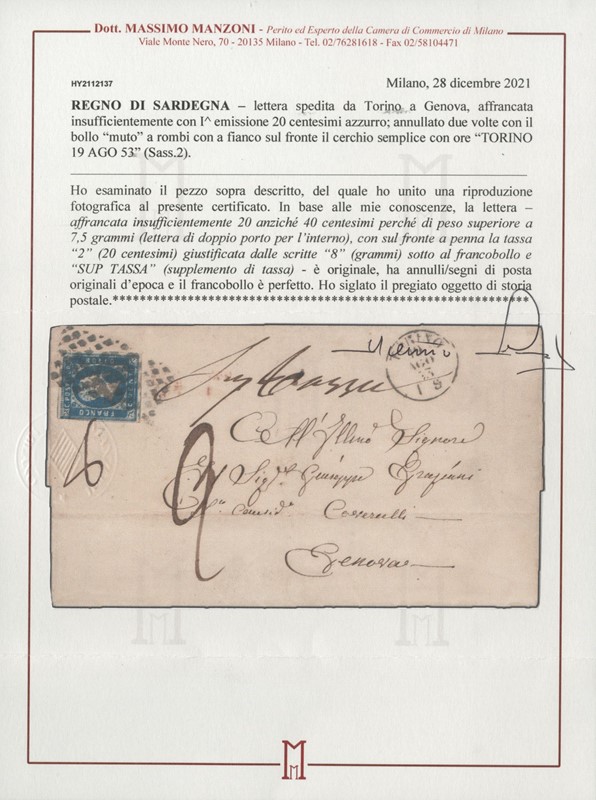 Dott. MASSIMO MANZONI - Perito ed Esperto della Camera di Commercio di Milano
Viale Monte Nero, 70 - 20135 Milano - Tel. 02/76281618 - Fax 02/58104471
HY2112137
Milano, 28 dicembre 2021
REGNO DI SARDEGNA – lettera spedita da Torino a Genova, affrancata
insufficientemente con I^ emissione 20 centesimi azzurro; annullato due volte con il
bollo “muto” a rombi con a fianco sul fronte il cerchio semplice con ore “TORINO
19 AGO 53” (Sass.2).
Ho esaminato il pezzo sopra descritto, del quale ho unito una riproduzione
fotografica al presente certificato. In base alle mie conoscenze, la lettera –
affrancata insufficientemente 20 anziché 40 centesimi perché di peso superiore a
7,5 grammi (lettera di doppio porto per l’interno), con sul fronte a penna la tassa
“2” (20 centesimi) giustificata dalle scritte “8” (grammi) sotto al francobollo e
“SUP TASSA” (supplemento di tassa) - è originale, ha annulli/segni di posta
originali d’epoca e il francobollo è perfetto. Ho siglato il pregiato oggetto di storia
postale.****************************************************
TORINO
AGO
53
FRANCO
8
2
Signore
Giuseppe
Genova
M